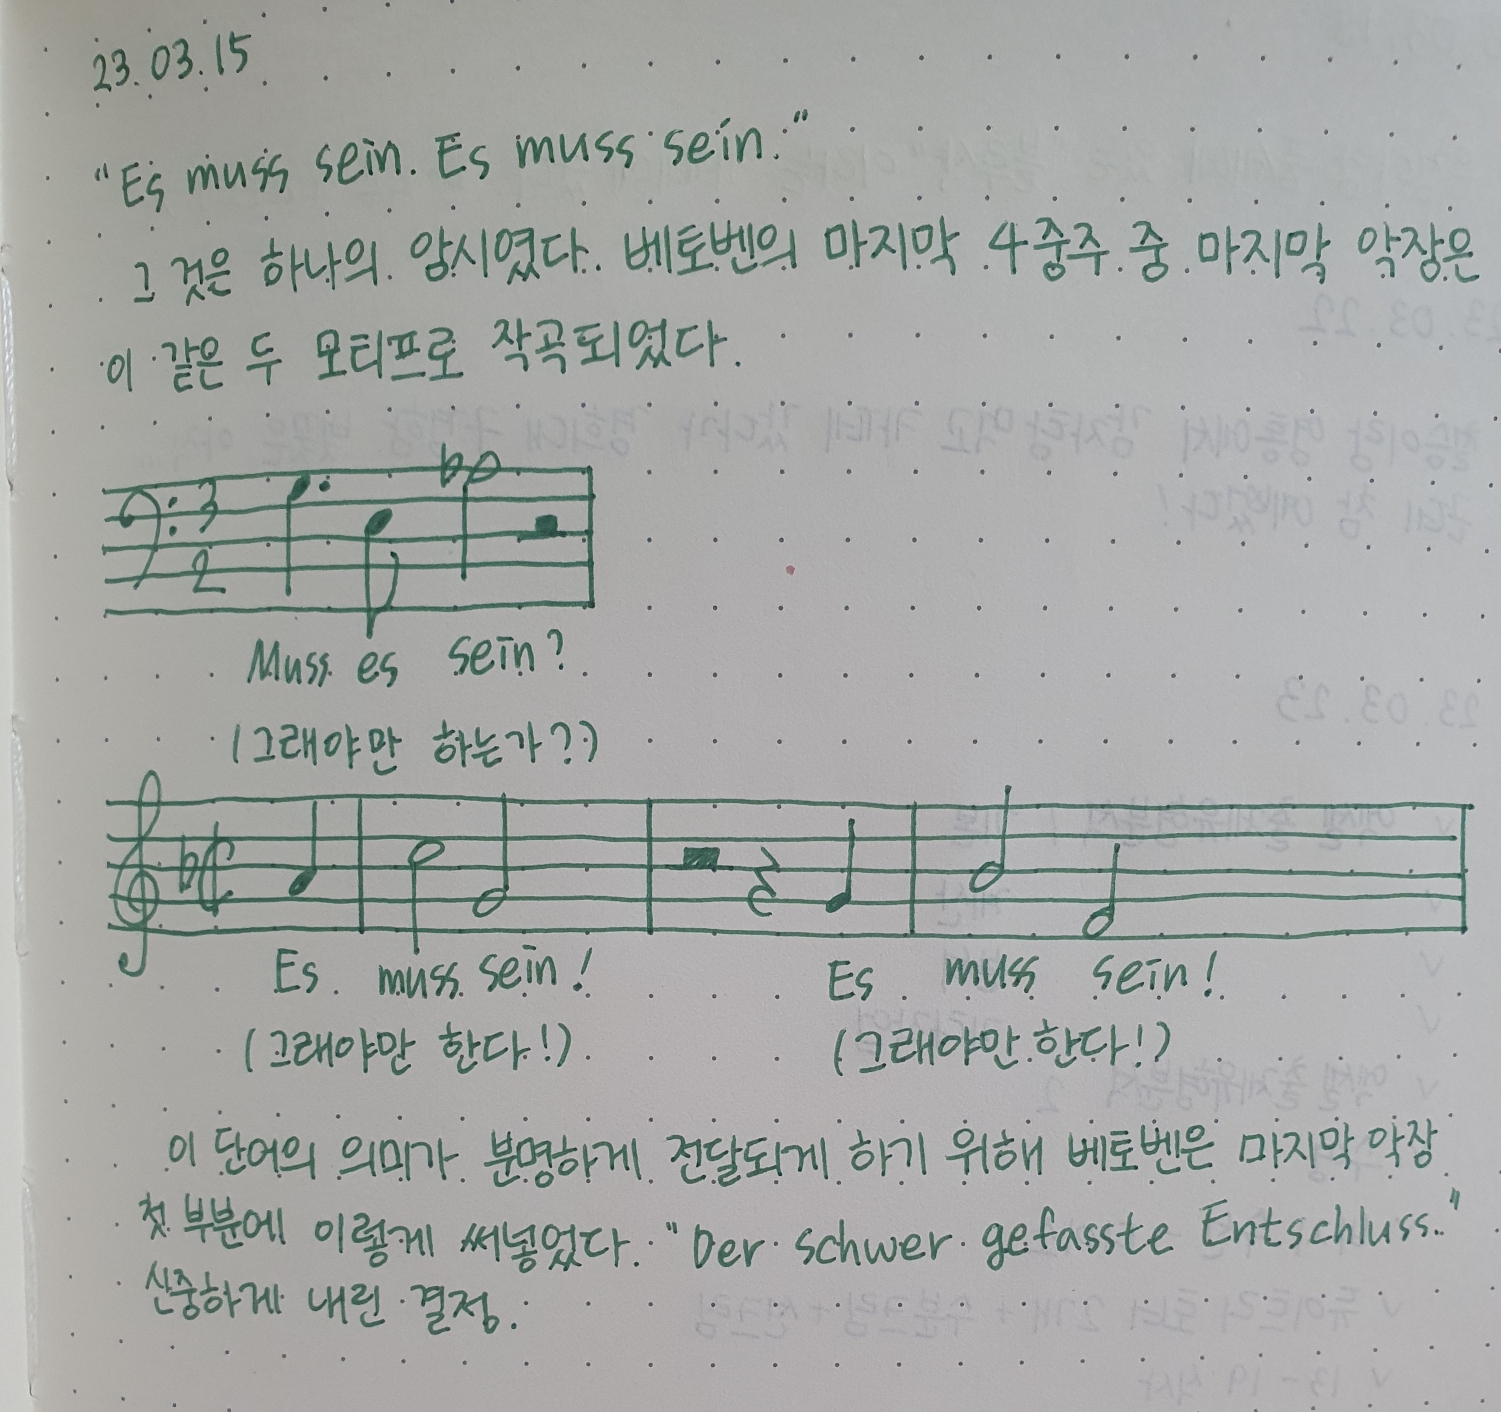 23.03.15
"Es muss sein. Es muss sein."
그것은 하나의 암시였다. 베토벤의 마지막 4중주 중 마지막 악장은
이 같은 두 모티프로 작곡되었다.
3
2
Muss es sein?
(그래야만 하는가?)
Es muss sein! Es muss sein!
(그래야만 한다!) (그래야만 한다!)
이 단어의 의미가 분명하게 전달되게 하기 위해 베토벤은 마지막 악장
첫 부분에 이렇게 써넣었다. "Der schwer gefasste Entschluss."
신중하게 내린 결정.